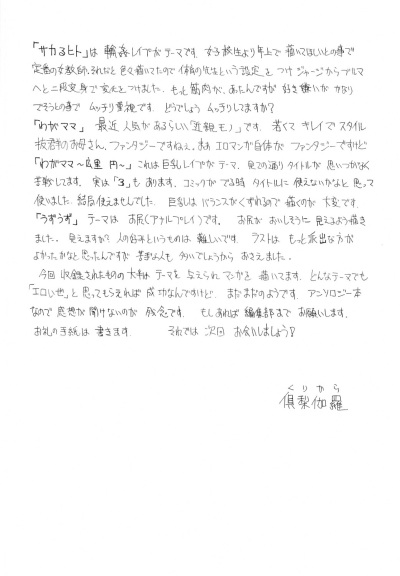 「サカるヒト」は 輪姦レイプがテーマです。女子校生より年上で 描いてほしいとの事で
定番の女教師。それだと 色々描いてたので 体育の先生という設定を つけ ジャージから ブルマ
へと 二段変身で 変化をつけました。もっと 筋肉が、あたんですが 好き嫌いが かなり
でそうとの事で ムッチリ重視です。どうでしょう ムッチリしてますか?
「わがママ」 最近 人気があるらしい「近親モノ」です。若くて キレイで スタイル
抜群のお母さん。ファンタジーですねぇ。まぁ エロマンガ自体が ファンタジーですけど
「わがママ～広里 円～」これは 巨乳レイプがテーマ、見ての通り タイトルが 思いつかなく
苦戦してます。実は「3」もあります。コミックが でる時 タイトルに 使えないかなぁと 思って
使いました。結局 使えませんでした。巨乳は バランスがくずれるので 描くのが 大変です。
「うずうず」テーマは お尻(アナルプレイ)です。 お尻が おいしそうに 見えるよう描き
ました。見えますか? 人の好みというものは 難しいです。 ラストは もっと派出な方が
よかったかなと思ったんですが 苦手な人も 多いでしょうから おさえました。
今回 収録されたものの 大半は テーマを 与えられ てこかと 描いてます。どんなテーマでも
「エロいな」と思ってもらえれば 成功なんですけど、まだまだのようです。アンソロジー本
なので 感想が 聞けないのが 残念です。 もしあれば 編集部まで お願いします。
お礼の手紙は 書きます。 それでは 次回 お会いしましょう!
くりから
倶梨伽羅